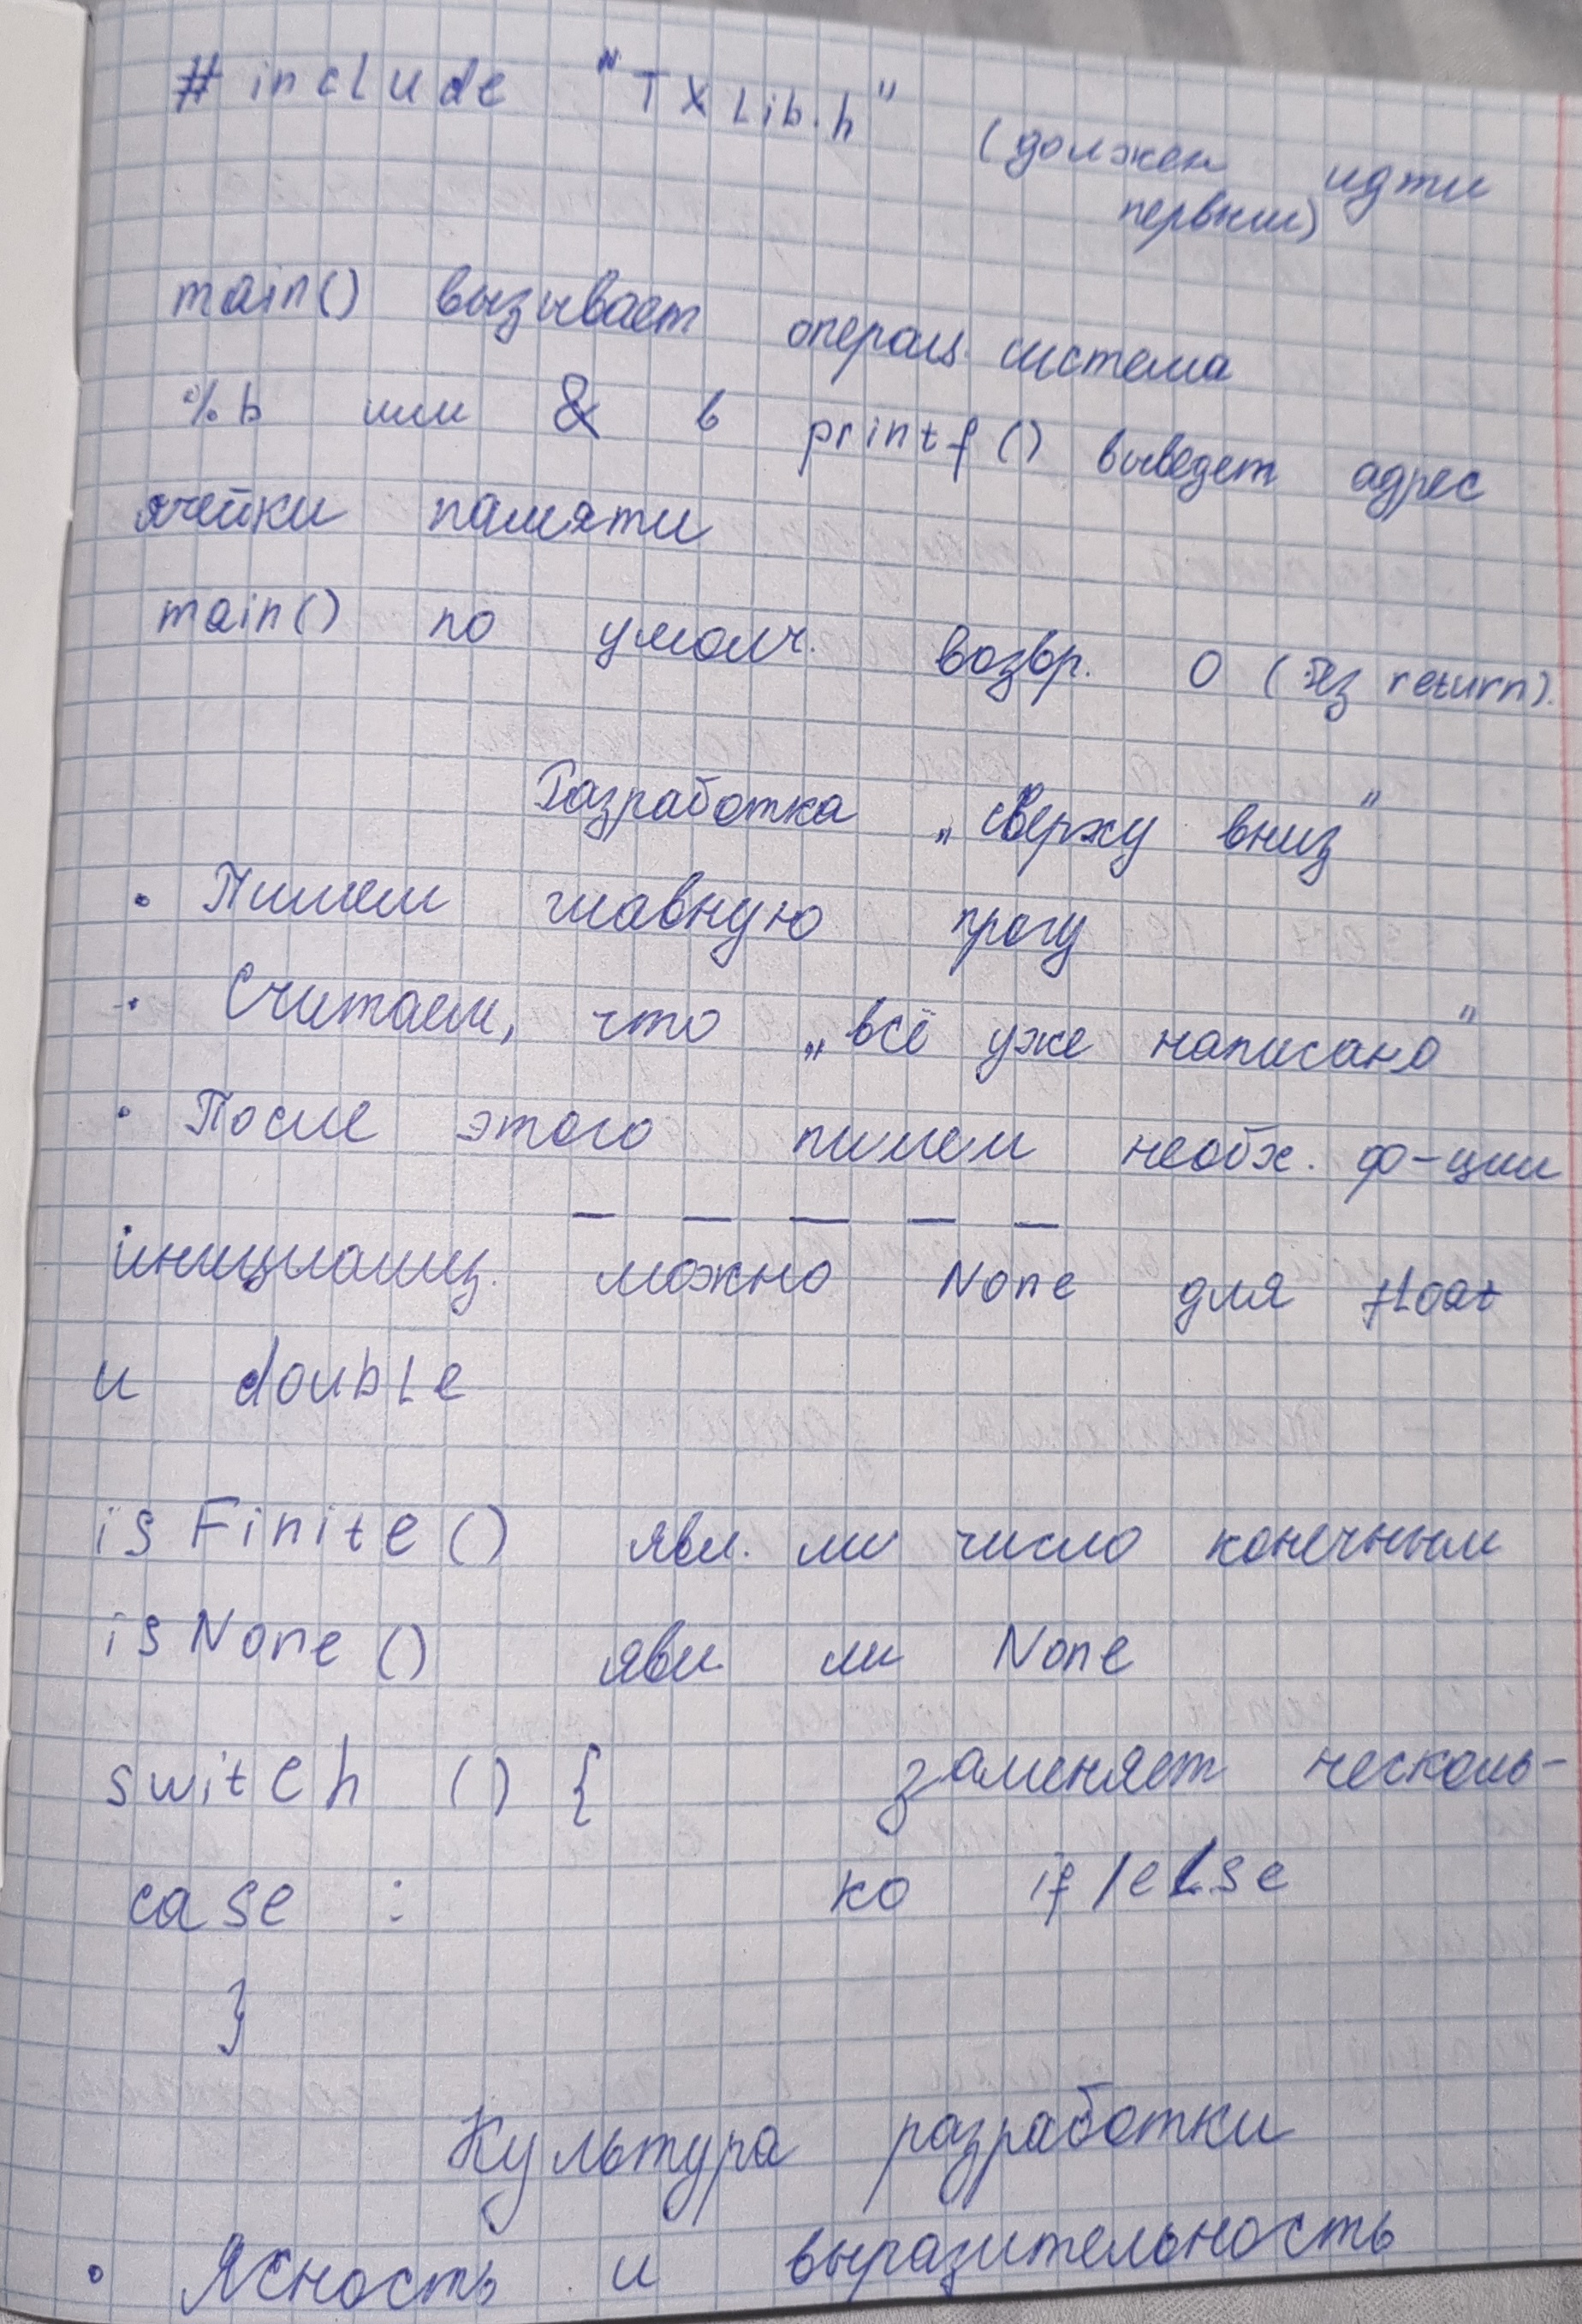 #include "TXLib.h" (должен идти
первым)
main() вызывает операц. система
%b или & в printf() выведет адрес
ячейки памяти
main() по умолч. возвр. 0 (без return).
Разработка „сверху вниз"
• Пишем главную прогу
• Считаем, что „всё уже написано"
• После этого пишем необх. ф-ции
— — — — —
инициализ. можно None для float
и double
isFinite() явл. ли число конечным
isNone() явл. ли None
switch () { заменяет несколь-
case : ко if/else
}
Культура разработки
• Ясность и выразительность